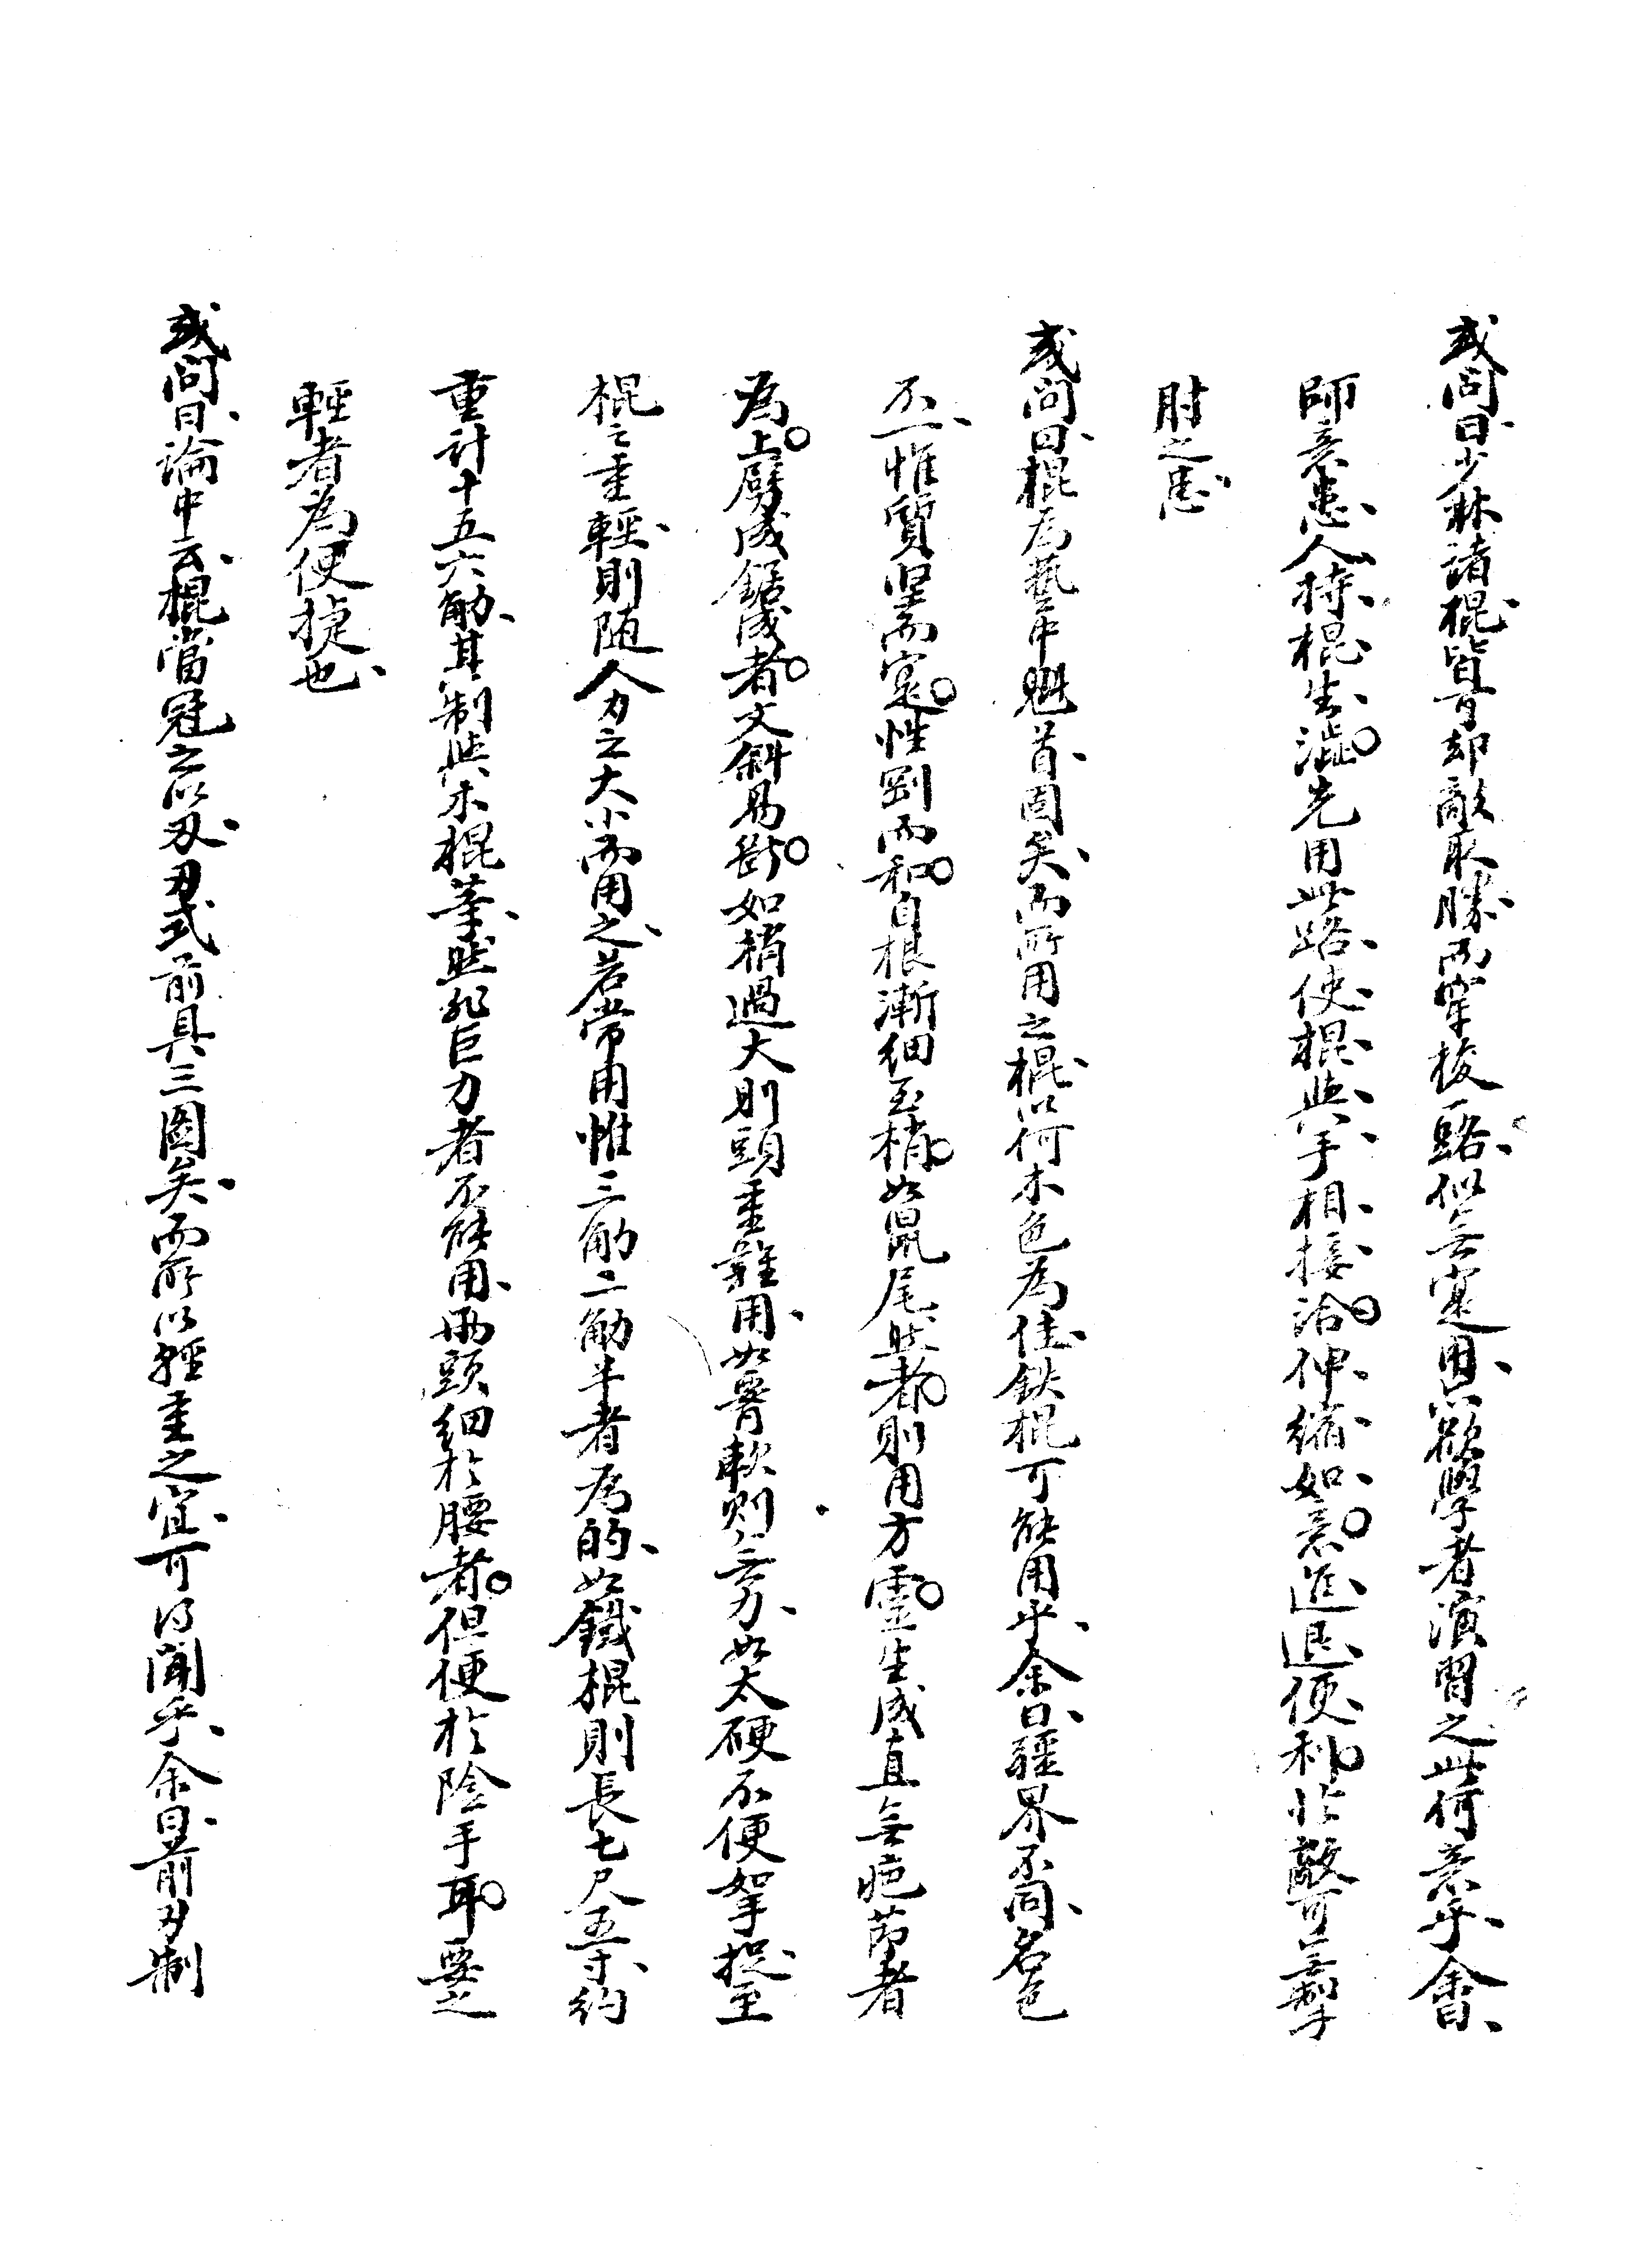 或問曰、少林諸棍、皆可却敵取勝、而穿梭一路、似無寔用、只欲學者演習之、此何意乎、余曰、
師意患、人持棍生澁、先用此路、使棍與手相接洽、伸縮如意、進退便利、临敵可無掣
肘之患、
或問曰、棍為藝中魁首、固矣、而所用之棍、以何木色為佳、鉄棍可能用乎、余曰、疆界不同、名色
不一、惟質堅而寔。性剛而和。自根漸細至梢。如鼠尾然者。則用方靈。生成直無疤節者
為。上劈成鋸成者。文斜易斷。如梢過大則頭重難用、如腰軟則無力、如太硬不便拏捉、至
棍之重輕、則随人力之大小而用之、若常用惟三觔二觔半者為的、如鐵棍則長七尺五寸、約
重計十五六觔、其制與木棍業、然非巨力者不能用、兩頭細於腰者。但便於陰手耳。要之
輕者為便捷也、
或問曰、論中云、棍當冠之以刃、刃式前具三圖矣、而所以輕重之宜、可得聞乎、余曰、前刃制